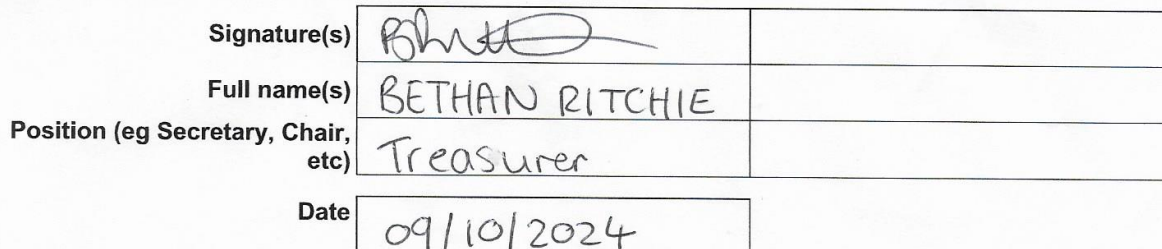 Signature(s)
Full name(s) BETHAN RITCHIE
Position (eg Secretary, Chair,
etc) Treasurer
Date 09/10/2024